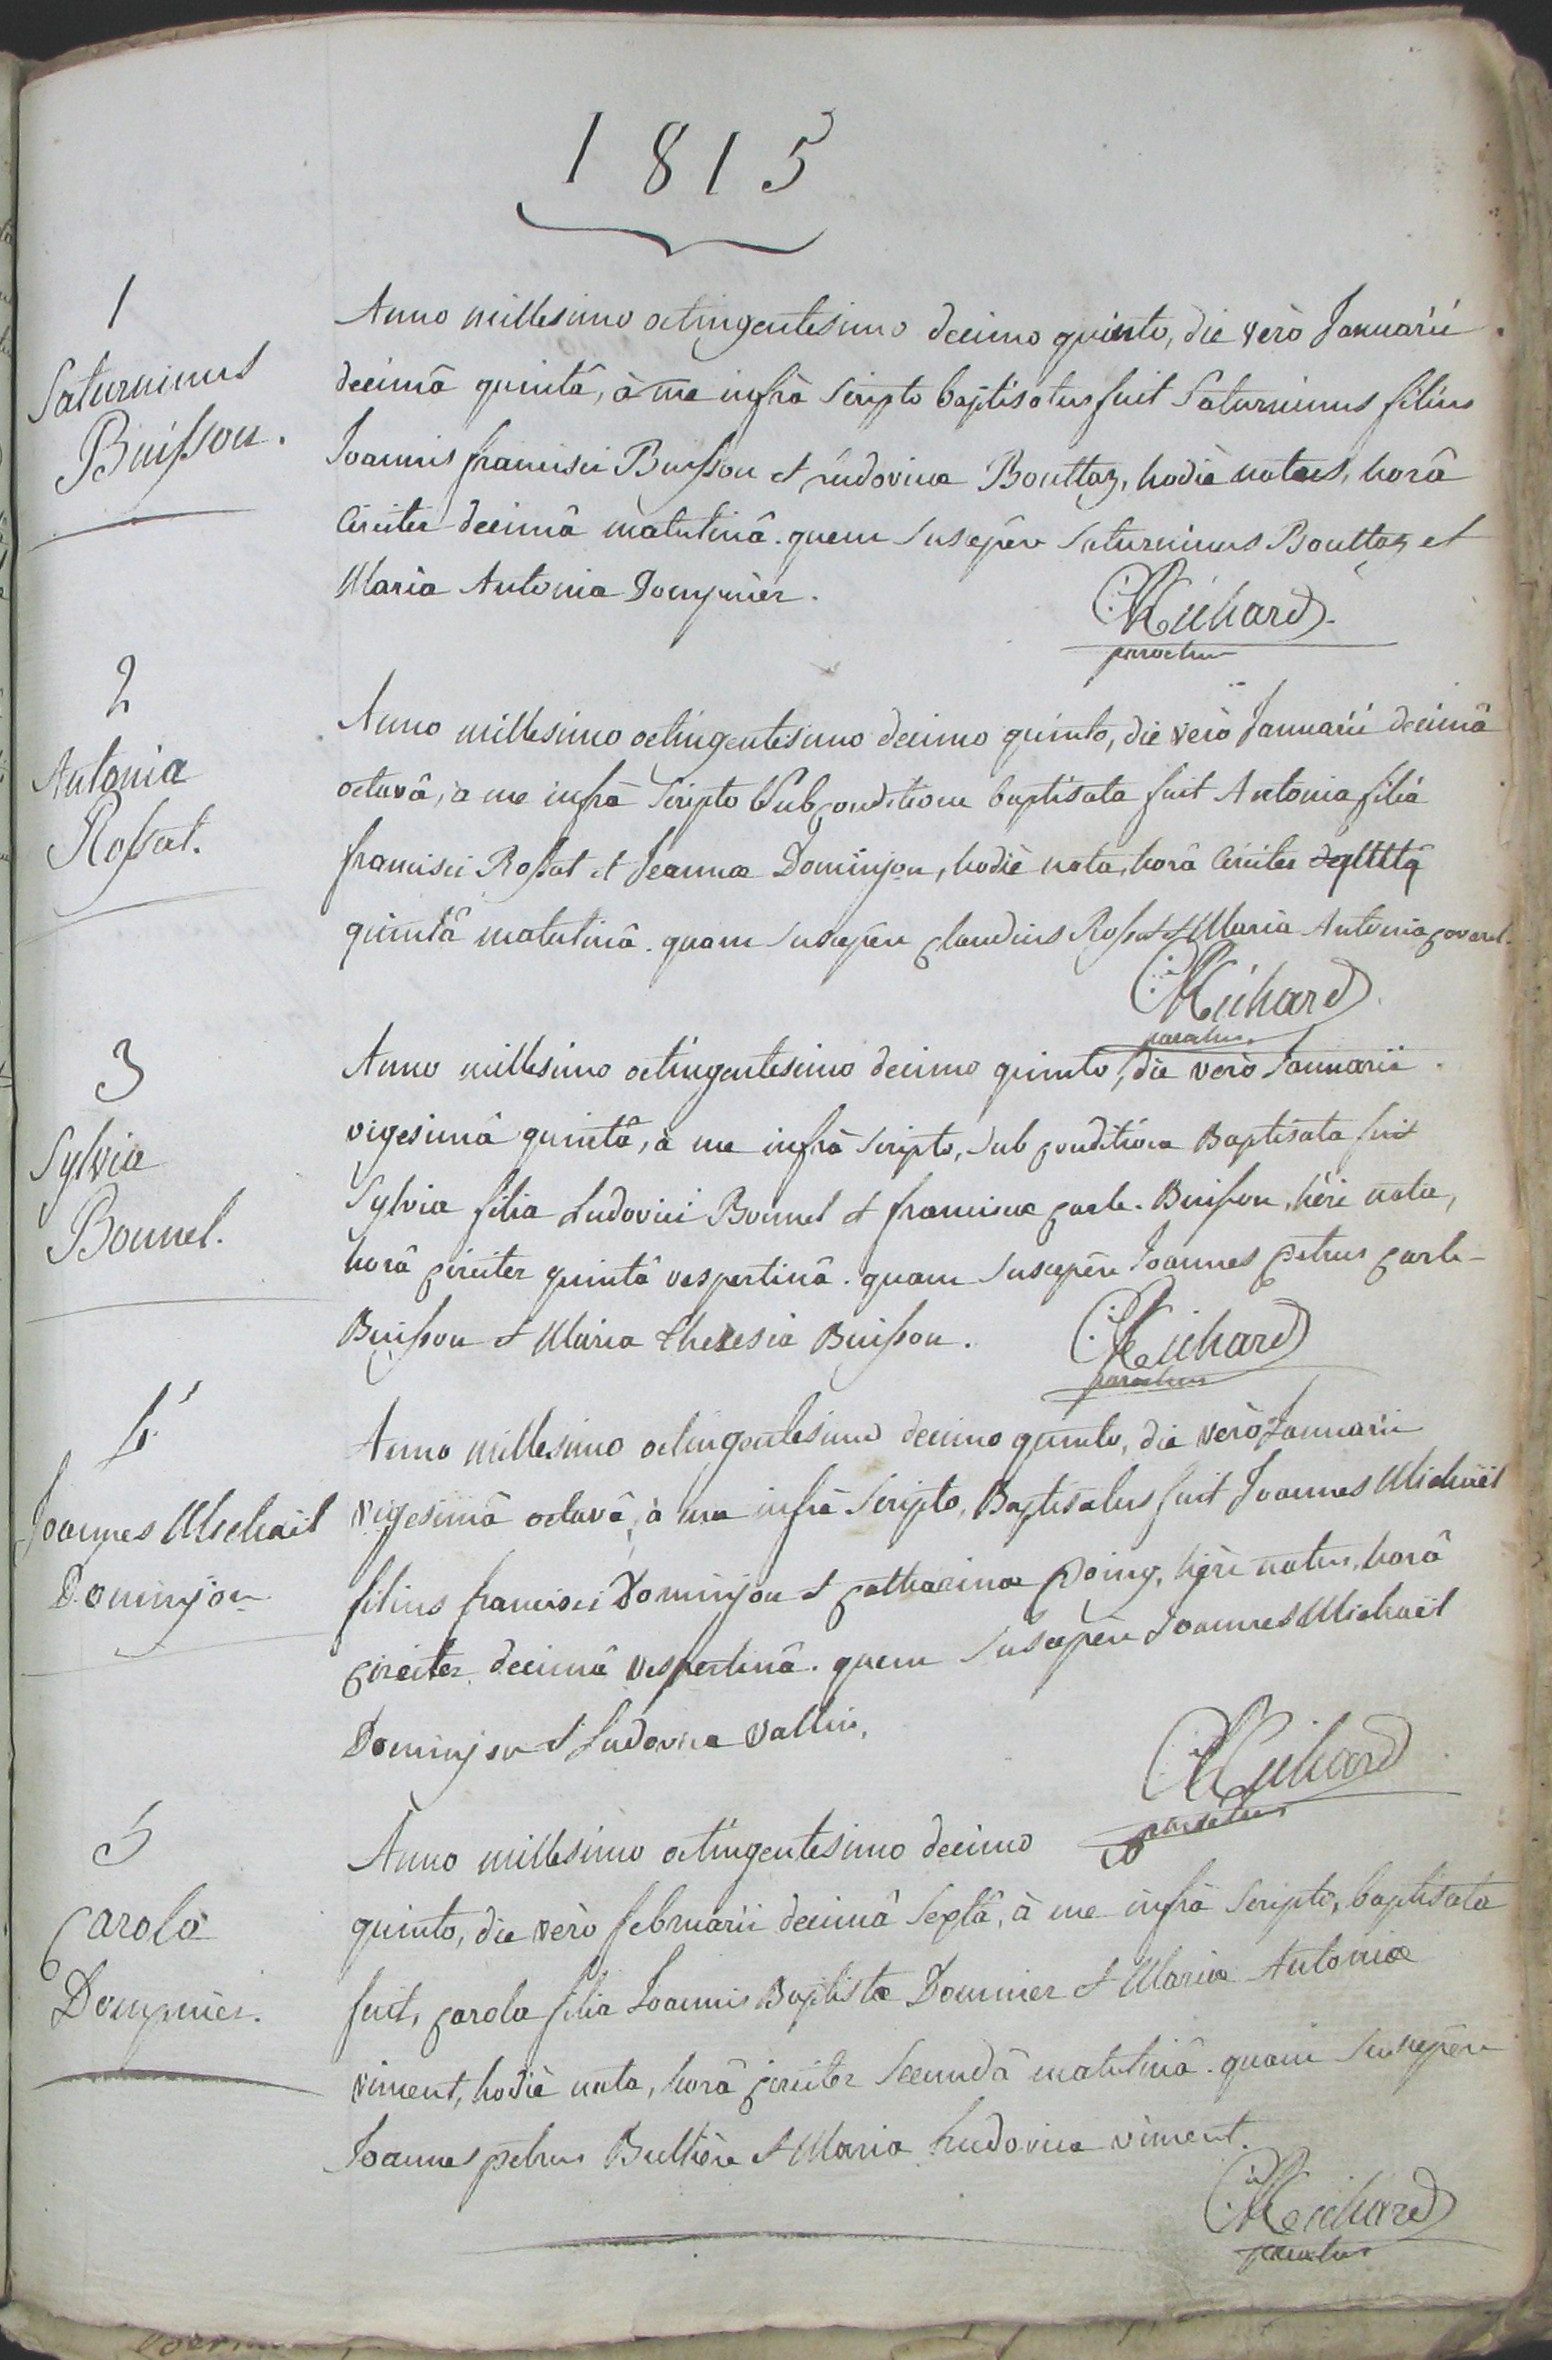 1815
1
Saturninus
Buisson.
Anno millesimo octingentesimo decimo quinto, die verò Januarii
decimâ quintâ, à me infrà scripto baptisatus fuit Saturninus filius
Joannis francisci Buisson et Ludovicæ Bouttaz, hodiè natus, horâ
Circiter decimâ matutinâ. quem suscepêre Saturninus Bouttaz et
Maria Antonia Dompnier.
Richard
parochus
2
Antonia
Rossat.
Anno millesimo octingentesimo decimo quinto, die verò Januarii decimâ
octavâ, à me infrà scripto sub conditione baptisata fuit Antonia filia
francisci Rossat et Jeannæ Dominjon, hodiè nata, horâ Circiter
quintâ matutinâ. quam suscepêre Claudius Rossat et Maria Antonia
Richard
parochus
3
Sylvia
Bonnel.
Anno millesimo octingentesimo decimo quinto, die verò Januarii
vigesimâ quintâ, à me infrà scripto, sub conditione Baptisata fuit
Sylvia filia Ludovici Bonnel et franciscæ Carle-Buisson, hèri nata,
horâ Circiter quintâ vespertinâ. quam suscepêre Joannes petrus Carle-
Buisson et Maria theresia Buisson.
Richard
parochus
4
Joannes Michaël
Dominjon
Anno millesimo octingentesimo decimo quinto, die verò Januarii
vigesimâ octavâ, à me infrà scripto, Baptisatus fuit Joannes Michaël
filius francisci Dominjon et Catharinæ Poing, hèri natus, horâ
Circiter decimâ vespertinâ. quem suscepêre Joannes Michaël
Dominjon et Ludovica Vallin.
Richard
parochus
5
Carola
Dompnier.
Anno millesimo octingentesimo decimo
quinto, die verò februarii decimâ sextâ, à me infrà scripto, baptisata
fuit, Carola filia Joannis Baptistæ Domnier et Mariæ Antoniæ
viment, hodiè nata, horâ Circiter secundâ matutinâ. quam suscepêre
Joannes petrus Bultière et Maria Ludovica viment.
Richard
parochus